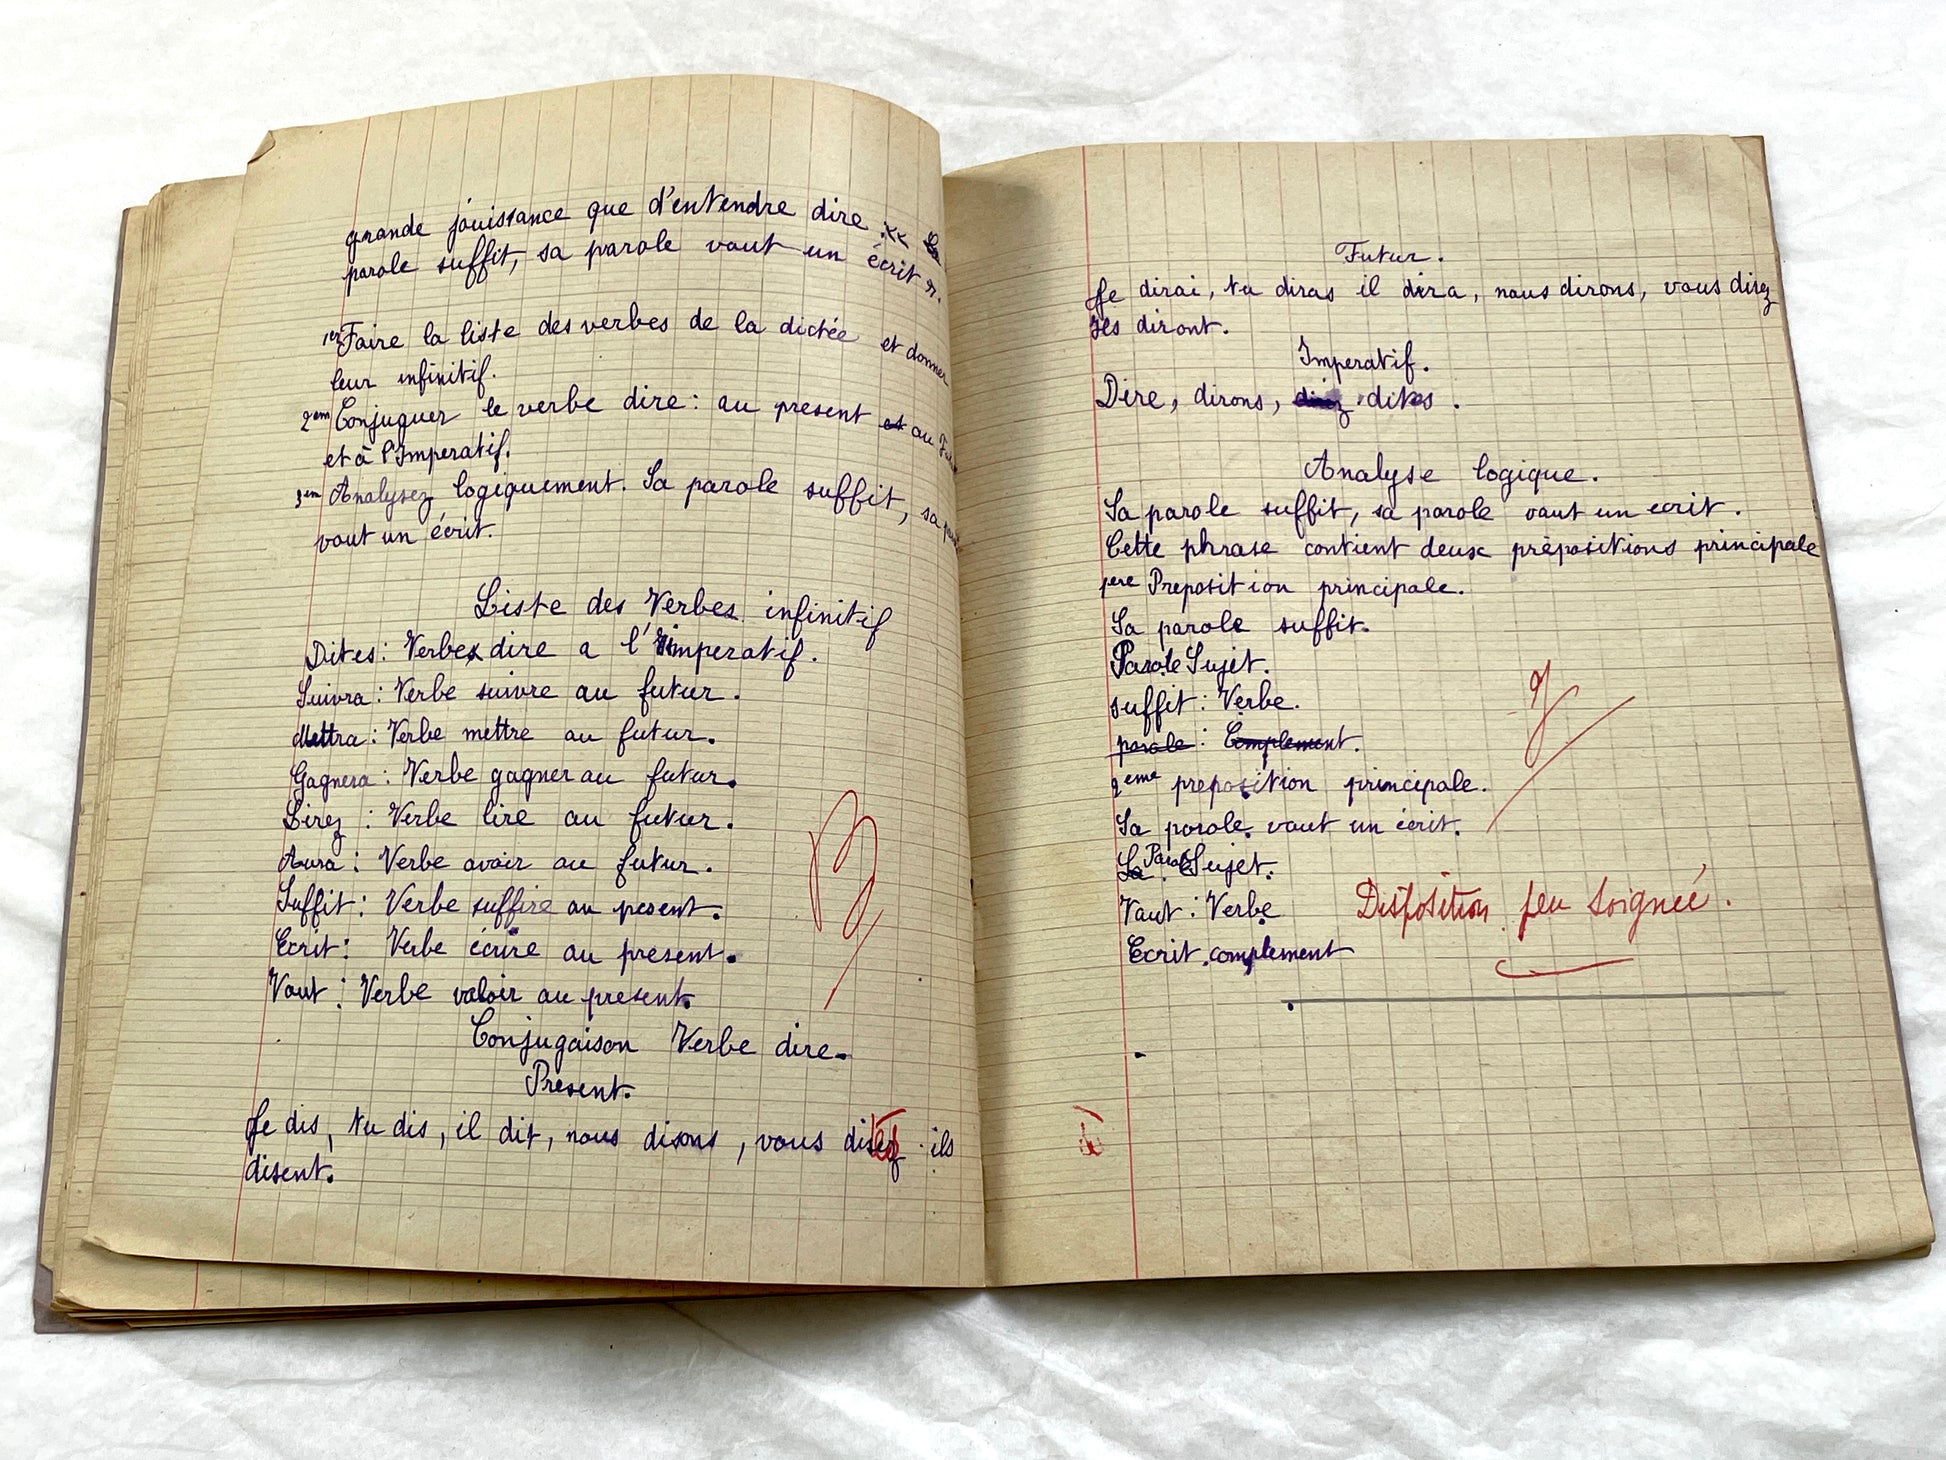 grande jouissance que d'entendre dire « Sa
parole suffit, sa parole vaut un écrit ».
1er Faire la liste des verbes de la dictée et donner
leur infinitif.
2em Conjuguer le verbe dire: au present et au Futur
et à l'Imperatif.
3em Analysez logiquement. Sa parole suffit, sa parole
vaut un écrit.
Liste des Verbes infinitif
Dites: Verbe dire a l'imperatif.
Suivra: Verbe suivre au futur.
Mettra: Verbe mettre au futur.
Gagnera: Verbe gagner au futur.
Lirez: Verbe lire au futur.
Aura: Verbe avoir au futur.
Suffit: Verbe suffire au present.
Ecrit: Verbe écrire au présent.
Vaut: Verbe valoir au present.
Conjugaison Verbe dire.
Present.
Je dis, tu dis, il dit, nous disons, vous disez tes ils
disent.
Futur.
Je dirai, tu diras il dira, nous dirons, vous direz
Ils diront.
Imperatif.
Dire, dirons, direz dites.
Analyse logique.
Sa parole suffit, sa parole vaut un ecrit.
Cette phrase contient deux prépositions principale
1ere Preposition principale.
Sa parole suffit.
Parole Sujet.
suffit: Verbe.
parole: Complement.
2eme preposition principale.
Sa parole vaut un écrit.
Sa Parole Sujet.
Vaut: Verbe
Disposition peu soignée.
Ecrit. complement